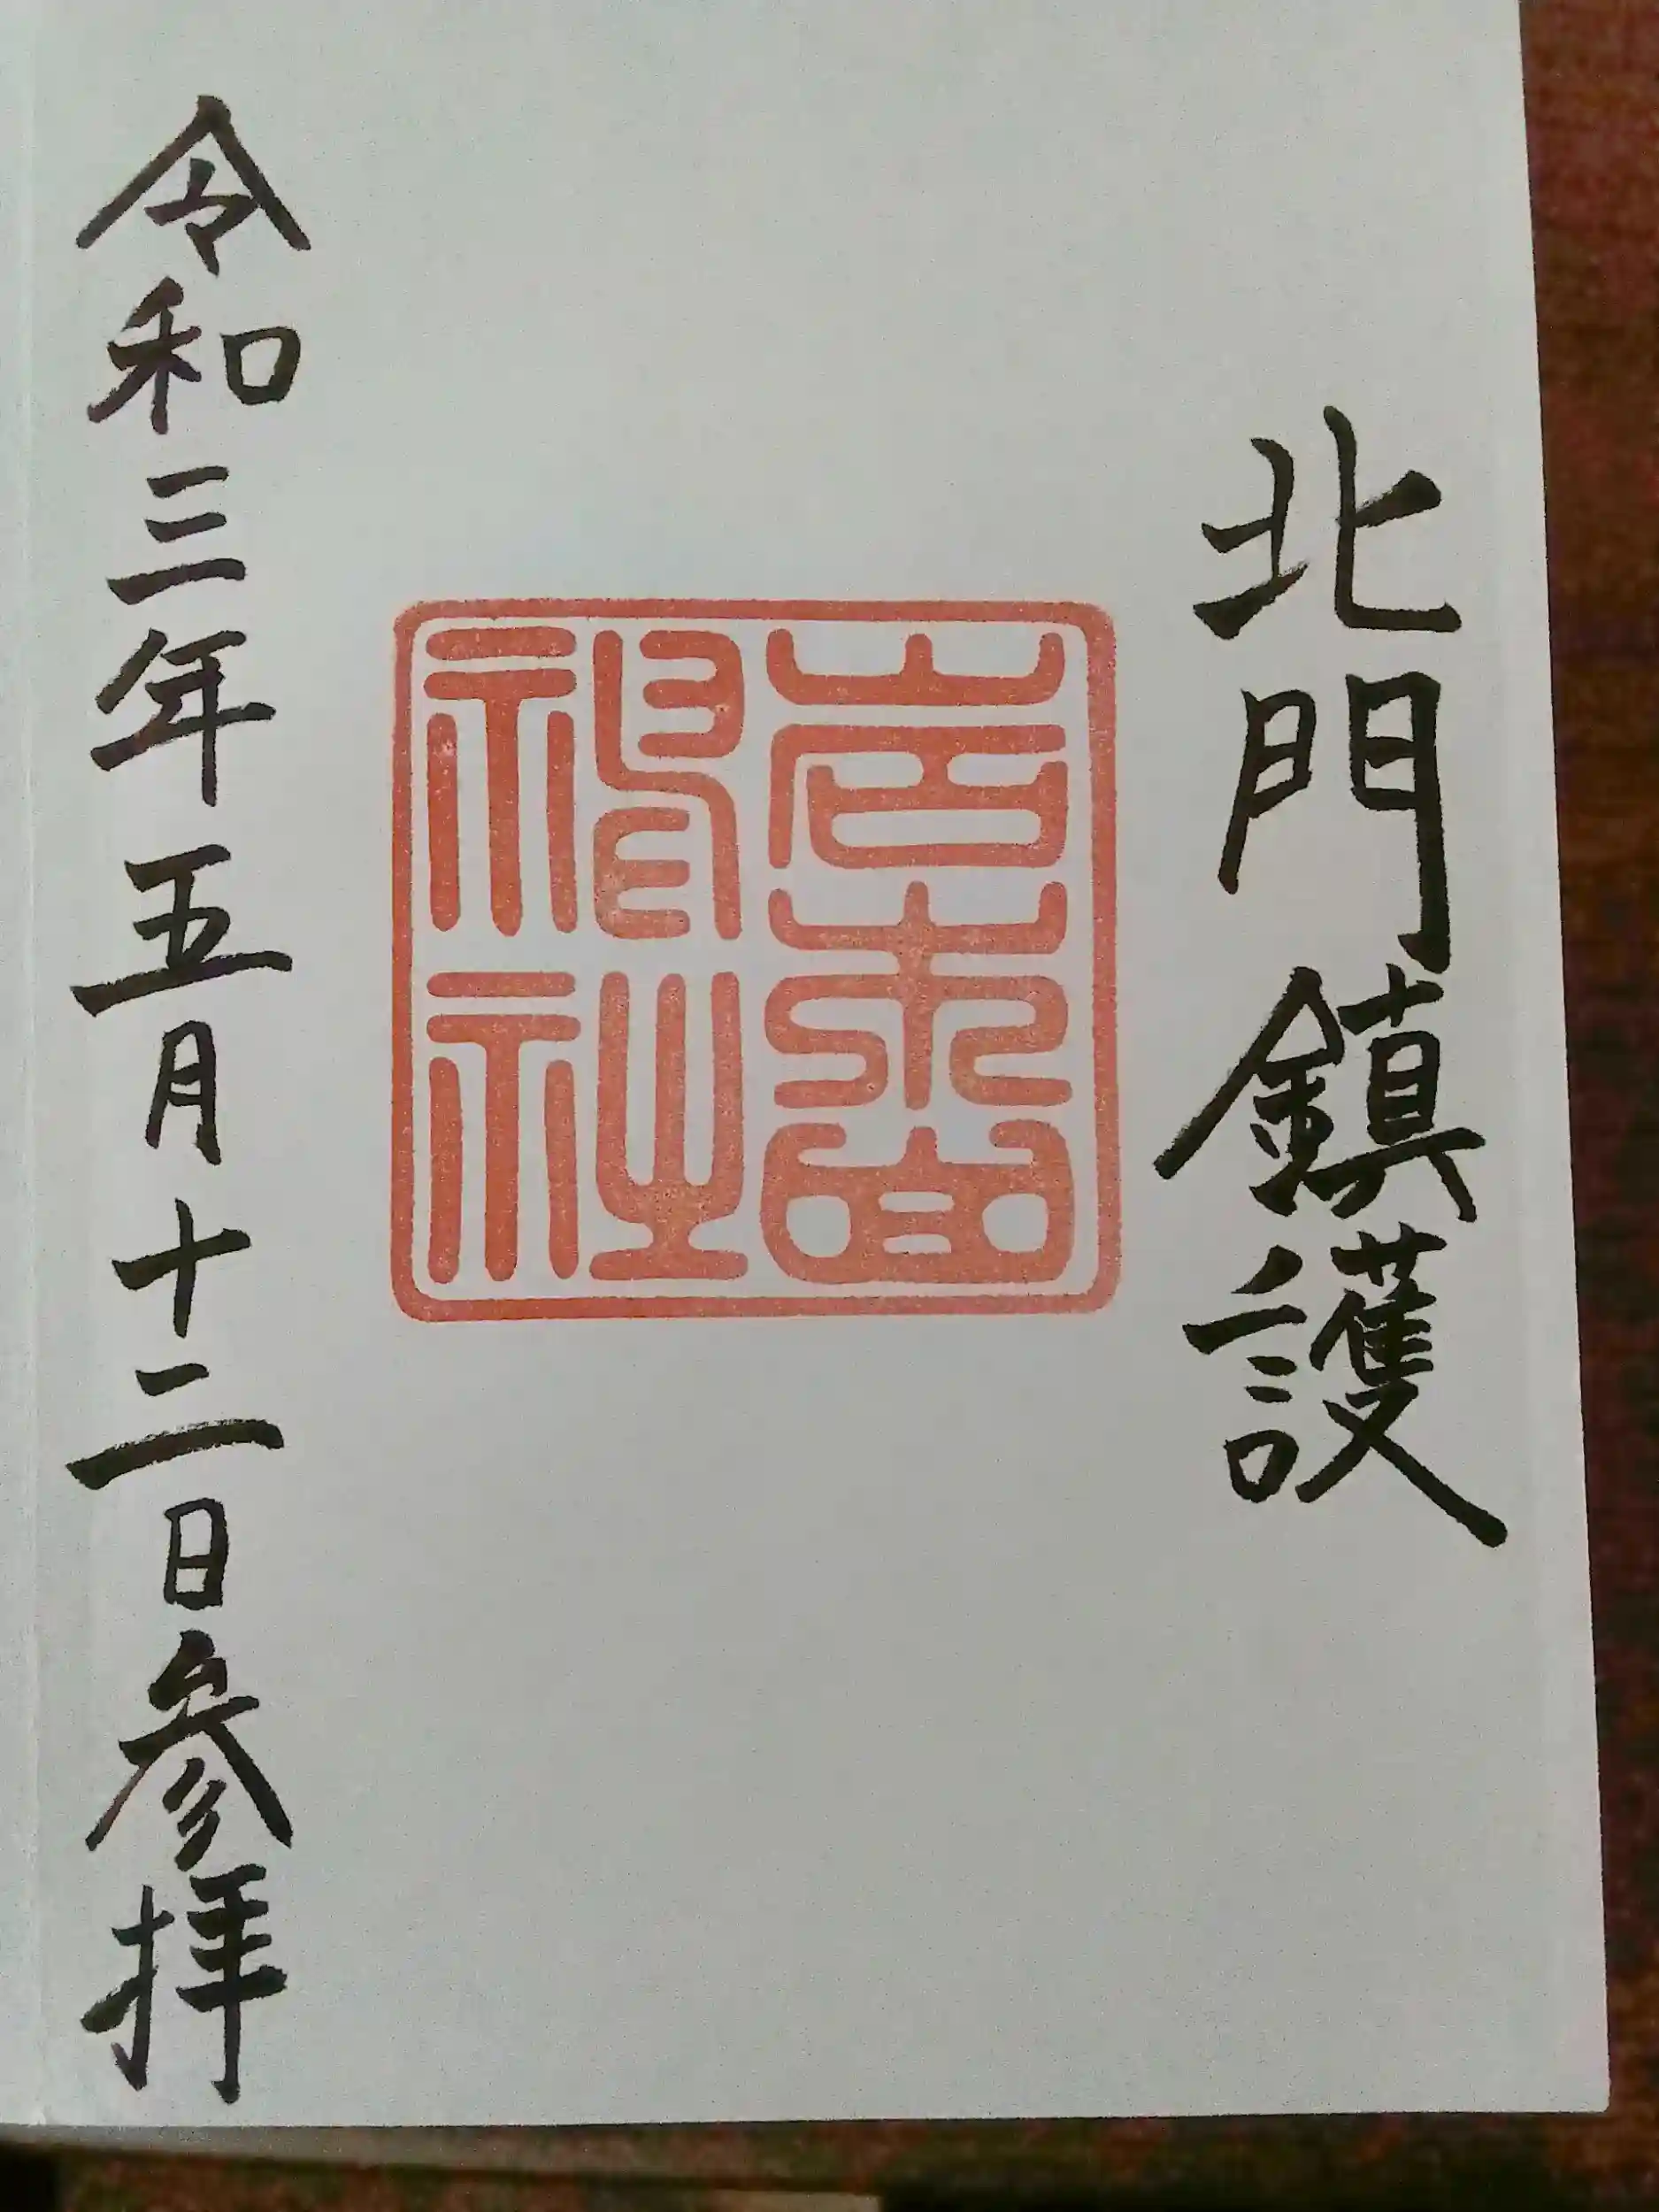 北門鎮護
岩木山
神社
令和三年五月十二日参拝